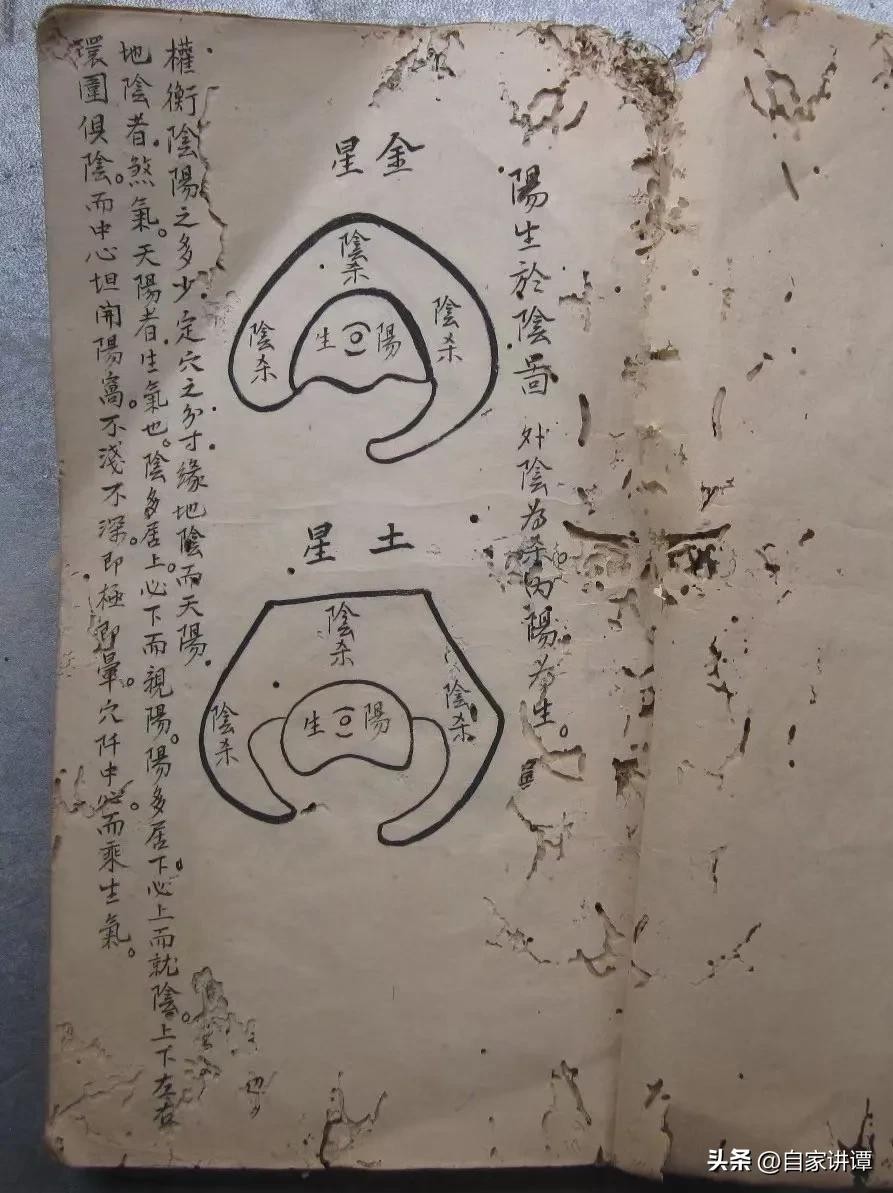 陽生於陰啚 外陰為杀內陽為生。
金星
陰杀
陰杀
陰杀
陽生
土星
陰杀
陰杀
陰杀
陽生
權衡陰陽之多少定穴之分寸緣地陰而天陽
地陰者煞氣。天陽者生氣也。陰多居上。必下而親陽。陽多居下。必上而就陰。上下左右
環圍俱陰。而中心坦開陽窩。不淺不深。即極即暈。穴阡中心。而乘生氣。
头条 @自家讲谭